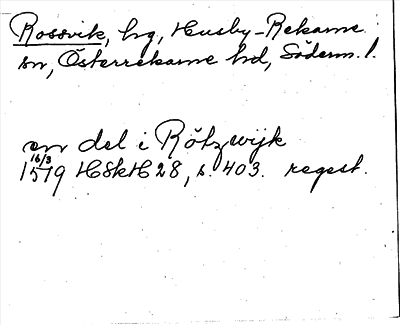 Rossvik, hg, Husby-Rekarne
sn, Österrekarne hd, Söderm. l.
en del i Rötzwijk
16/3
1579 HSkH 28, s. 403. regest.